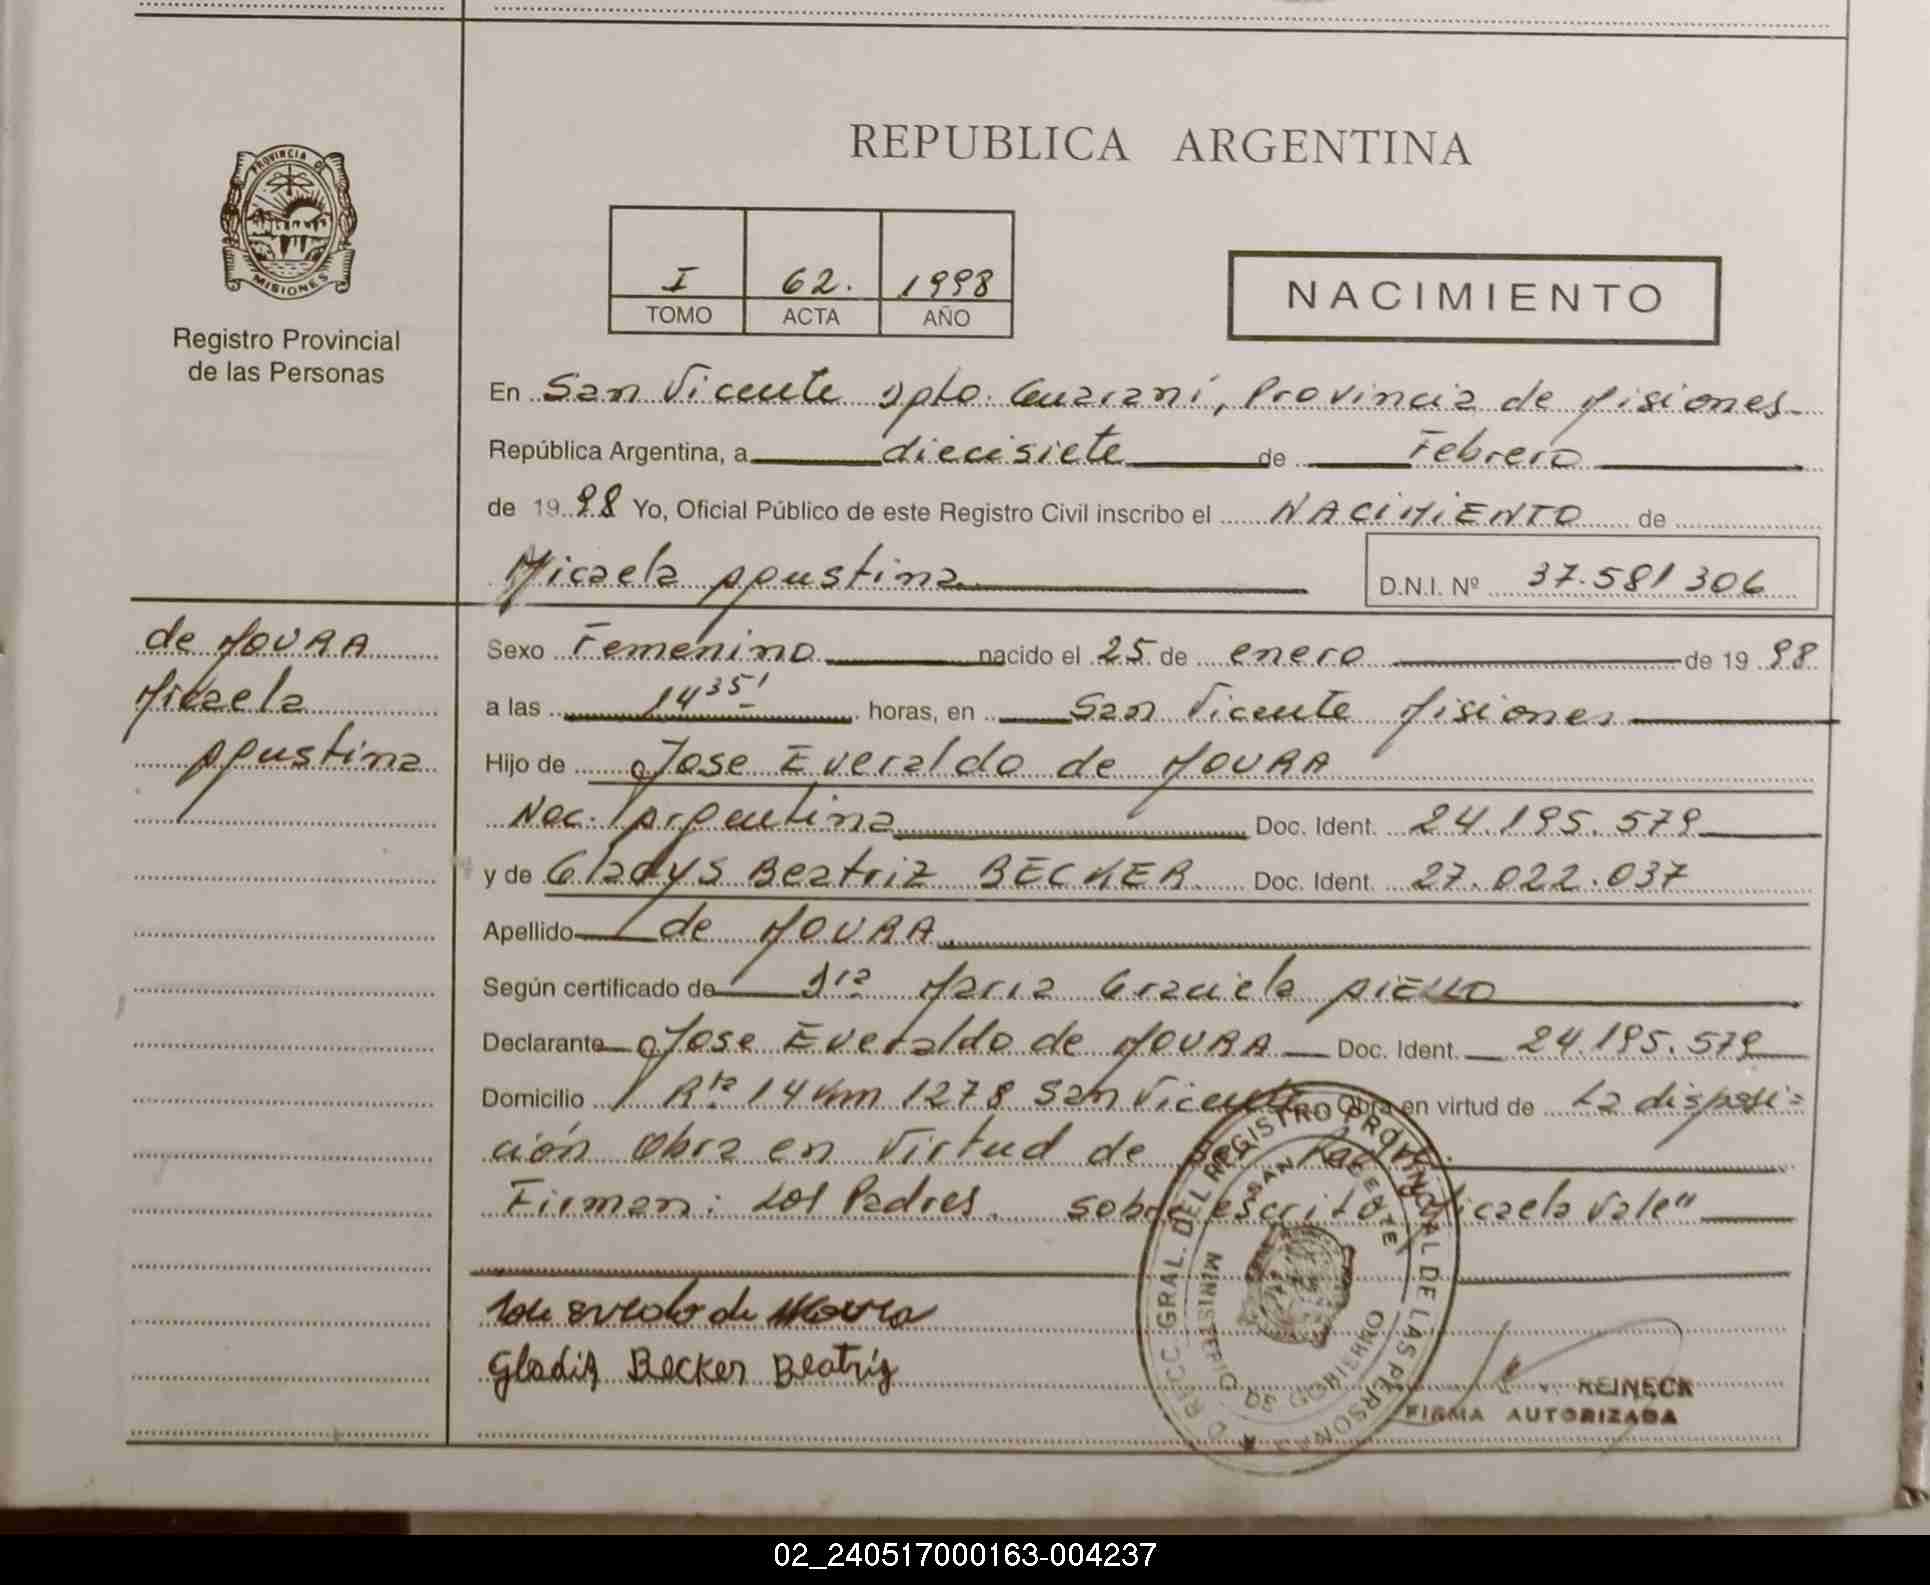 REPUBLICA ARGENTINA
PROVINCIA DE
MISIONES
Registro Provincial
de las Personas
I 62. 1998
TOMO ACTA AÑO
NACIMIENTO
En San Vicente Dpto. Guaraní, Provincia de Misiones
República Argentina, a diecisiete de Febrero
de 1998 Yo, Oficial Público de este Registro Civil inscribo el NACIMIENTO de
Micaela Agustina
D.N.I. Nº 37.581 306
de MOURA
Micaela
Agustina
Sexo Femenino nacido el 25 de enero de 1998
a las 14 35' horas, en San Vicente Misiones
Hijo de Jose Everaldo de MOURA
Nac. Argentina Doc. Ident. 24.195.579
y de Gladys Beatriz BECKER Doc. Ident. 27.022.037
Apellido de MOURA
Según certificado de Dra Maria Graciela AIELLO
Declarante Jose Everaldo de MOURA Doc. Ident. 24.195.579
Domicilio Rta 14 km 1278 San Vicente Obra en virtud de La disposi=
ción Obra en Virtud de Padre.
Firman: Los Padres. Sobre escrito "Micaela Vale"
Jose Everaldo de Moura
Gladiz Becker Beatriz
DIRECC. GRAL. DEL REGISTRO PROVINCIAL DE LAS PERSONAS
SAN VICENTE
MINISTERIO DE GOBIERNO
REINECK
FIRMA AUTORIZADA
02_240517000163-004237